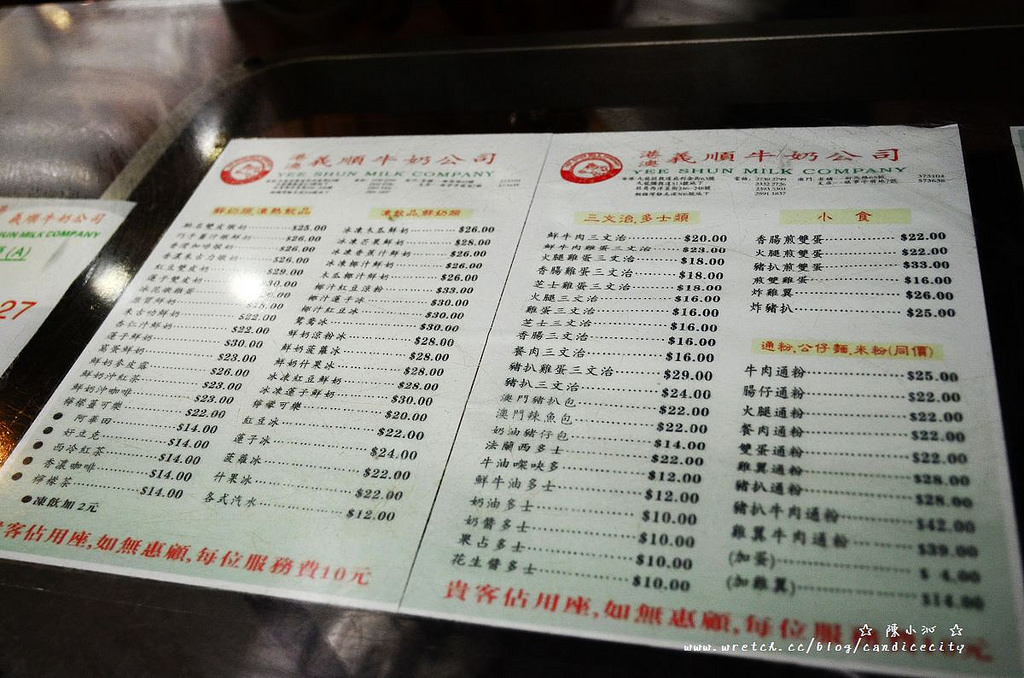 港澳義順牛奶公司
YEE SHUN MILK COMPANY
鮮奶類,凍熱飲品
巧手薑汁燉奶 $26.00
香濃咖啡燉奶 $26.00
香濃朱古力燉奶 $26.00
紅豆雙皮奶 $29.00
蓮子雙皮奶
朱古力鮮奶 $22.00
杏仁汁鮮奶 $22.00
蓮子鮮奶 $30.00
窩蛋鮮奶 $23.00
鮮奶麥皮露 $26.00
鮮奶沖紅茶 $23.00
鮮奶沖咖啡 $23.00
檸檬薑可樂 $22.00
●阿華田 $14.00
●好立克 $14.00
●西冷紅茶 $14.00
●香濃咖啡 $14.00
●檸檬茶 $14.00
●凍飲加2元
凍飲品鮮奶類
冰凍木瓜鮮奶 $26.00
冰凍芒果鮮奶 $28.00
冰凍香蕉汁鮮奶 $26.00
冰凍椰汁鮮奶 $26.00
木瓜椰汁鮮奶 $26.00
椰汁紅豆涼粉 $33.00
椰汁蓮子冰 $30.00
椰汁紅豆冰 $30.00
鴛鴦冰 $30.00
鮮奶涼粉冰 $28.00
鮮奶菠蘿冰 $28.00
鮮奶什果冰 $28.00
冰凍紅豆鮮奶 $28.00
冰凍蓮子鮮奶 $30.00
檸檬可樂 $20.00
紅豆冰 $22.00
蓮子冰 $24.00
菠蘿冰 $22.00
什果冰 $22.00
各式汽水 $12.00
貴客佔用座,如無惠顧,每位服務費10元
港澳義順牛奶公司
YEE SHUN MILK COMPANY
三文治,多士類
鮮牛肉三文治 $20.00
鮮牛肉雞蛋三文治 $23.00
火腿雞蛋三文治 $18.00
香腸雞蛋三文治 $18.00
芝士雞蛋三文治 $18.00
火腿三文治 $16.00
雞蛋三文治 $16.00
芝士三文治 $16.00
香腸三文治 $16.00
餐肉三文治 $16.00
豬扒雞蛋三文治 $29.00
豬扒三文治 $24.00
澳門豬扒包 $22.00
澳門辣魚包 $22.00
奶油豬仔包 $14.00
法蘭西多士 $22.00
牛油㗎吔多 $12.00
鮮牛油多士 $12.00
奶油多士 $10.00
奶醬多士 $10.00
果占多士 $10.00
花生醬多士 $10.00
小食
香腸煎雙蛋 $22.00
火腿煎雙蛋 $22.00
豬扒煎雙蛋 $33.00
煎雙雞蛋 $16.00
炸雞翼 $26.00
炸豬扒 $25.00
通粉,公仔麵,米粉(同價)
牛肉通粉 $25.00
腸仔通粉 $22.00
火腿通粉 $22.00
餐肉通粉 $22.00
雙蛋通粉 $22.00
雞翼通粉 $28.00
豬扒通粉 $28.00
豬扒牛肉通粉 $42.00
雞翼牛肉通粉 $39.00
(加蛋) $4.00
(加雞翼) $14.00
貴客佔用座,如無惠顧,每位服
義順牛奶公司
SHUN MILK COMPANY
(A)
27
☆ 陳小沁 ☆
www.wretch.cc/blog/candicecity